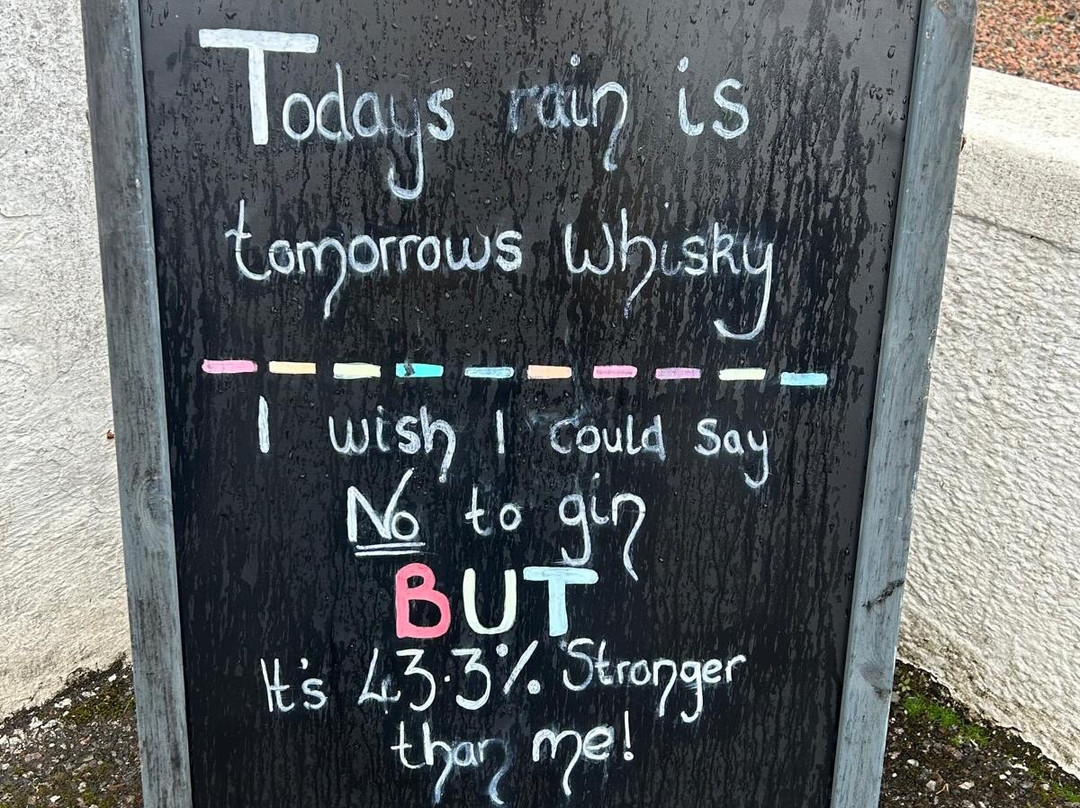 Todays rain is
tomorrows whisky
I wish I could say
No to gin
BUT
It's 43.3% Stronger
than me!